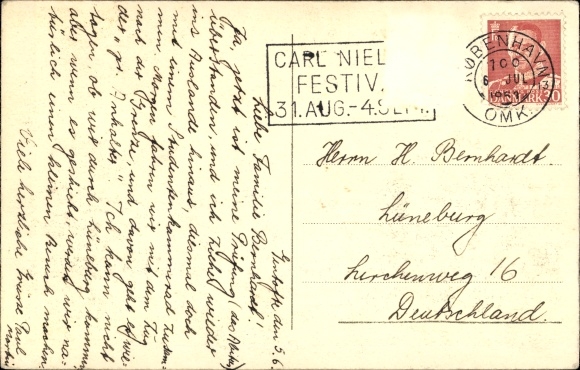 CARL NIEL
FESTIV
31. AUG.-4. SEPT.
KØBENHAVN
OMK.
6 JUL
1953
DANMARK 30
Herrn H. Bernhardt.
Lüneburg
Lerchenweg 16
Deutschland.
Gentofte den 5.6.
Liebe Familie Bernhardt!
Ja, jetzt ist meine Prüfung (das Abitur)
überstanden, und ich fahre wieder
ins Ausland hinaus, diesmal doch
mit einem Studenkenkammerad zusam-
men. Morgen fahren wir mit dem Zug
nach der Grenze, und davon geht es wie-
der, per Anhalter." Ich kann nicht
sagen, ob wir durch Lüneburg kommen,
aber wenn es geschieht, würde wir na-
türlich einen kleinen Besuch machen.
Viele herzliche Grüsse Paul
Martin